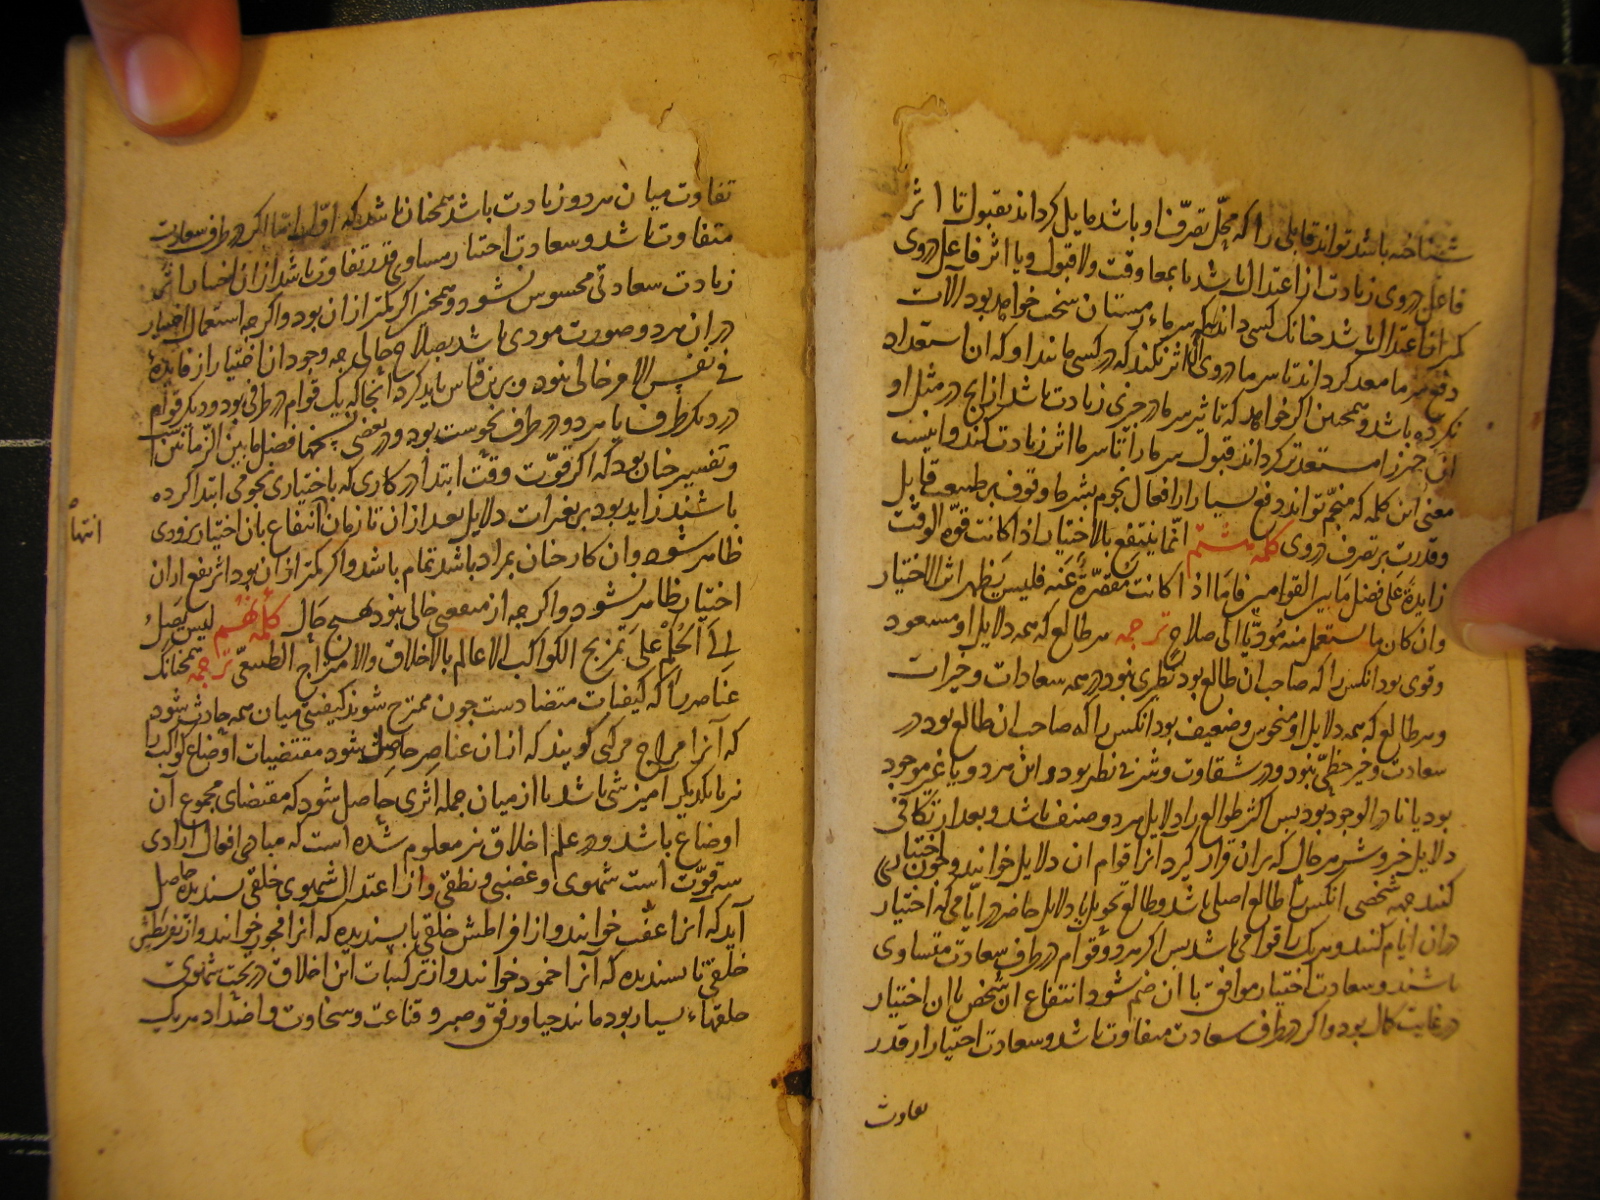 شناخته باشد تواند قابلی را که محلّ تصرّف او باشد مایل کرداند بقبول تا اثر
فاعل در وی زیادت از اعتدال باشد یا بمعاوقت ولا قبول و یا اثر فاعل در وی
کمتر از اعتدال باشد چنانک کسی داند که سرماء زمستان سخت خواهد بود آلات
دفع سرما معد کرداند تا سرما در وی آن اثر نکند که در کسی مانند او که ان استعداد
نکرده باشد و همچنین اکر خواهد که تاثیر سرما در چیزی زیادت باشد از انچ در مثل او
ان چیز را مستعدتر کرداند قبول سرما را تا سرما اثر زیادت کند و اینست
معنی این کلمه که منجّم تواند دفع بسیار از افعال نجوم بشرط وقوف بر طبیعت قابل
و قدرت بر تصرف در وی کلمه هشتم انّما ینتفع بالاختیار اذا کانت قوّة الوقت
زایدة علی فضل ما بین القوامین فامّا اذا کانت مقصّرة عنه فلیس یظهر اثر الاختیار
وان کان ما یستعمل منه مؤدّیا الی صلاح ترجمه هر طالع که همه دلایل او مسعود
و قوی بود انکس را که صاحب ان طالع بود نظیری نبود در همه سعادات و خیرات
و هر طالع که همه دلایل او منحوس و ضعیف بود انکس را که صاحب ان طالع بود در
سعادت و خیر حظّی نبود و در شقاوت و شر بی نظیر بود و این هر دو یا غیر موجود
بود یا نادر الوجود بود پس اکثر طوالع را دلایل هر دو صنف باشد و بعد از تکافی
دلایل خیر و شر هر حال که بران قرار کیرد انرا قوام ان دلایل خوانند و چون اختیاری
کنند جهة شخصی انکس را طالع اصلی باشد و طالع تحویل یا دلایل حاضر در ایامی که اختیار
دران ایام کنند و هریک را قوامی باشد پس اکر هر دو قوام در طرف سعادت متساوی
باشند و سعادت اختیار موافق با ان ضم شود انتفاع ان شخص با ان اختیار
در غایت کمال بود و اکر در طرف سعادت متفاوت باشد و سعادت اختیار از قدر
تفاوت
تفاوت میان هر دو زیادت باشد همچنان باشد که اوّل امّا اکر در طرف سعادت
متفاوت باشد و سعادت اختیار مساوی قدر تفاوت باشد از ان اختیار اثر
زیادت سعادتی محسوس نشود و همچنین اکر کمتر از ان بود و اکرچه استعمال اختیار
دران هر دو صورت مودی باشد بصلاح حالی چه وجود ان اختیار از فایدهٔ
فی نفس الامر خالی نبود و برین قیاس باید کرد انجا که یک قوام در طرفی بود و دیکر قوام
در دیکر طرف یا هر دو در طرف نحوست بود و در بعضی نسخها فضل ما بین الزّمانین
و تفسیر چنان بود که اکر قوّت وقت ابتدا در کاری که باختیاری نجومی ابتدا کرده
باشند زاید بود بر تغیرات دلایل بعد از ان تا زمان انتفاع بان اختیار بزودی
انتها
ظاهر شود وان کار چنان بمراد باشد تمام باشد و اکر کمتر از ان بود اثر نفع ازان
اختیار ظاهر نشود و اکرچه از منفعتی خالی نبود بهیچ حال کلمه نهم لیس یصل
الی الحکم علی تمزیج الکواکب الا عالم بالاخلاق والامتزاج الطبیعیّ ترجمه همچنانک
عناصر را که کیفیات متضادست چون ممتزج شوند کیفیتی میان همه حادث شود
که آنرا مزاج مرکبی کویند که از ان عناصر حاصل شود مقتضیات اوضاع کواکب را
نیز با یکدیکر آمیزشی باشد تا از میان جمله اثری حاصل شود که مقتضای مجموع آن
اوضاع باشد و در علم اخلاق نیز معلوم شده است که مبادی افعال ارادی
سه قوّت است شهوی و غضبی و نطقی و از اعتدال شهوی خلقی پسندیده حاصل
آید که آنرا عفّت خوانند و از افراطش خلقی ناپسندیده که آنرا فجور خوانند و از تفریطش
خلقی ناپسندیده که آنرا خمود خوانند و از ترکیبات این اخلاق در تحت شهوت
خلقهاء بسیار بود مانند حیا و رفق و صبر و قناعت و سخاوت و اضداد هریک